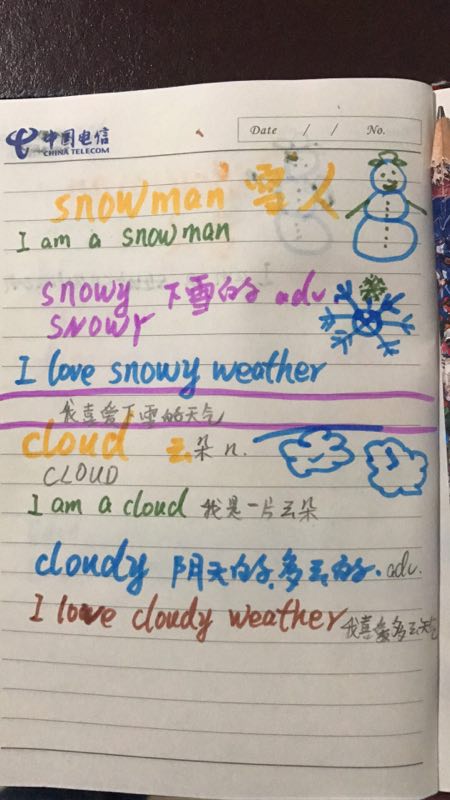 中国电信
CHINA TELECOM
Date / / No.
snowman 雪人
I am a snowman
snowy 下雪的 adv
SNOWY
I love snowy weather
我喜爱下雪的天气
cloud 云朵 n.
CLOUD
I am a cloud 我是一片云朵
cloudy 阴天的,多云的. adv.
I love cloudy weather 我喜爱多云天气